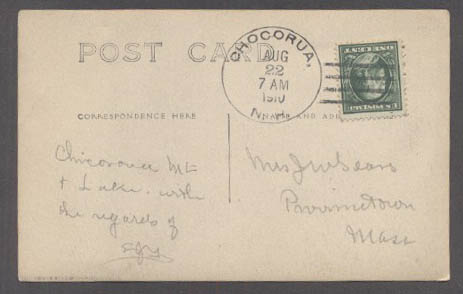 POST CARD
CHOCORUA,
AUG
22
7 AM
1910
N.H.
CORRESPONDENCE HERE
NAME AND AD
Chicoroua Mt
+ Lake. with
the regards of
Mrs J W Sears
Provincetown
Mass